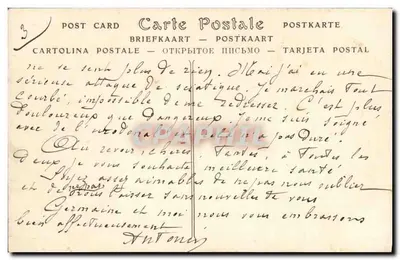 3
POST CARD Carte Postale POSTKARTE
BRIEFKAART — POSTKAART
CARTOLINA POSTALE — ОТКРЫТОЕ ПИСЬМО — TARJETA POSTAL
ne se sent plus de rien. Moi j'ai eu une
sérieuse attaque de sciatique, je marchais tout
courbé, impossible de me redresser. C'est plus
douloureux que dangereux, je me suis soigné
avec de l' a pas duré.
Au revoir chères Tantes, à toutes les
deux je vous souhaite meilleure santé.
Soyez assez aimables de ne pas nous oublier
et de nous laisser sans nouvelles de vous
Germaine et moi nous vous embrassons
bien affectueusement
Antonin